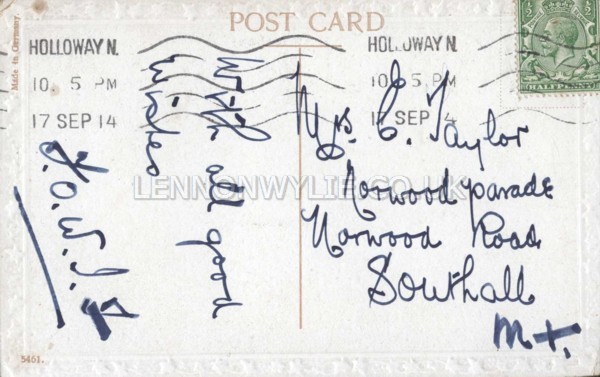 POST CARD
Made in Germany.
HOLLOWAY N.
10. 5 PM
17 SEP 14
HOLLOWAY N.
10. 5 PM
17 SEP 14
HALFPENNY
With all good
Wishes
Mrs. C. Taylor
Norwood parade
Norwood Road
Southall
LENNONWYLIE.CO.UK
5461.